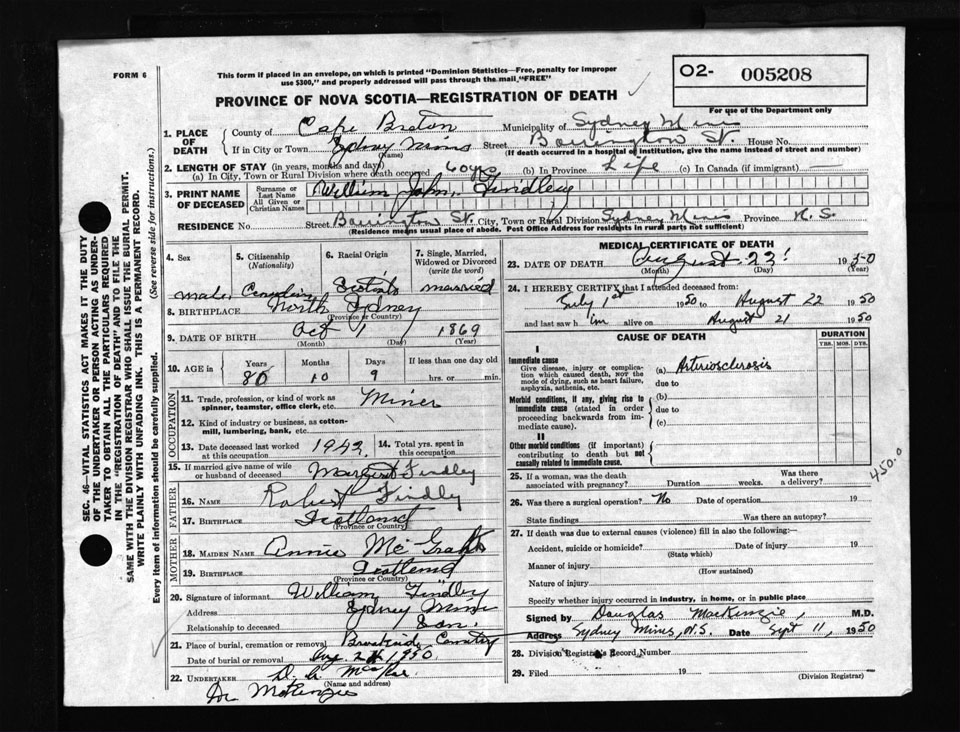 FORM 6
This form if placed in an envelope, on which is printed "Dominion Statistics—Free, penalty for improper
use $300," and properly addressed will pass through the mail, "FREE"
O2- 005208
For use of the Department only
PROVINCE OF NOVA SCOTIA—REGISTRATION OF DEATH
1. PLACE OF DEATH
County of Cape Breton Municipality of Sydney Mines
If in City or Town Sydney Mines Street Barrington St. House No.
(Name) (If death occurred in a hospital or institution, give the name instead of street and number)
2. LENGTH OF STAY (in years, months and days)
(a) In City, Town or Rural Division where death occurred 60 yrs (b) In Province Life (c) In Canada (if immigrant)
3. PRINT NAME OF DECEASED
Surname or Last Name
All Given or Christian Names
William John Findley
RESIDENCE No. Street Barrington St. City, Town or Rural Division Sydney Mines Province N.S.
(Residence means usual place of abode. Post Office Address for residents in rural parts not sufficient)
4. Sex
5. Citizenship (Nationality)
6. Racial Origin
7. Single, Married, Widowed or Divorced (write the word)
male Canadian Scotish married
8. BIRTHPLACE North Sydney
(Province or Country)
9. DATE OF BIRTH Oct 1 1869
(Month) (Day) (Year)
10. AGE in Years Months Days If less than one day old
80 10 9 hrs. or min.
OCCUPATION
11. Trade, profession, or kind of work as
spinner, teamster, office clerk, etc. Miner
12. Kind of industry or business, as cotton-
mill, lumbering, bank, etc.
13. Date deceased last worked at this occupation 1942.
14. Total yrs. spent in this occupation
15. If married give name of wife or husband of deceased Margaret Findley
FATHER
16. NAME Robert Findley
17. BIRTHPLACE Scotland
(Province or Country)
MOTHER
18. MAIDEN NAME Annie McGrath
19. BIRTHPLACE Scotland
(Province or Country)
20. Signature of informant William Findley
Address Sydney Mines
Relationship to deceased Son.
21. Place of burial, cremation or removal Brookside Cemetery
Date of burial or removal Aug 24 1950
22. UNDERTAKER
(Name and address)
Dr McKenzie
MEDICAL CERTIFICATE OF DEATH
23. DATE OF DEATH August 22 1950
(Month) (Day) (Year)
24. I HEREBY CERTIFY that I attended deceased from:
July 1st 1950 to August 22 1950
and last saw h im alive on August 21 1950
CAUSE OF DEATH
DURATION
YRS. MOS. DYS.
I
Immediate cause
Give disease, injury or complication which caused death, not the mode of dying, such as heart failure, asphyxia, asthenia, etc.
(a) Arteriosclerosis
due to
Morbid conditions, if any, giving rise to immediate cause (stated in order proceeding backwards from immediate cause).
(b)
due to
(c)
II
Other morbid conditions (if important) contributing to death but not causally related to immediate cause.
450.0
25. If a woman, was the death associated with pregnancy? Duration weeks. Was there a delivery?
26. Was there a surgical operation? No Date of operation 19
State findings Was there an autopsy?
27. If death was due to external causes (violence) fill in also the following:
Accident, suicide or homicide? Date of injury 19
(State which)
Manner of injury
(How sustained)
Nature of injury
Specify whether injury occurred in industry, in home, or in public place
Signed by Douglas MacKenzie, M.D.
Address Sydney Mines, N.S. Date Sept 11, 1950
28. Division Registrar's Record Number
29. Filed 19
(Division Registrar)
SEC. 46—VITAL STATISTICS ACT MAKES IT THE DUTY
OF THE UNDERTAKER OR PERSON ACTING AS UNDER-
TAKER TO OBTAIN ALL THE PARTICULARS REQUIRED
IN THE "REGISTRATION OF DEATH" AND TO FILE THE
SAME WITH THE DIVISION REGISTRAR WHO SHALL ISSUE THE BURIAL PERMIT.
WRITE PLAINLY WITH UNFADING INK. THIS IS A PERMANENT RECORD.
Every item of information should be carefully supplied. (See reverse side for instructions.)